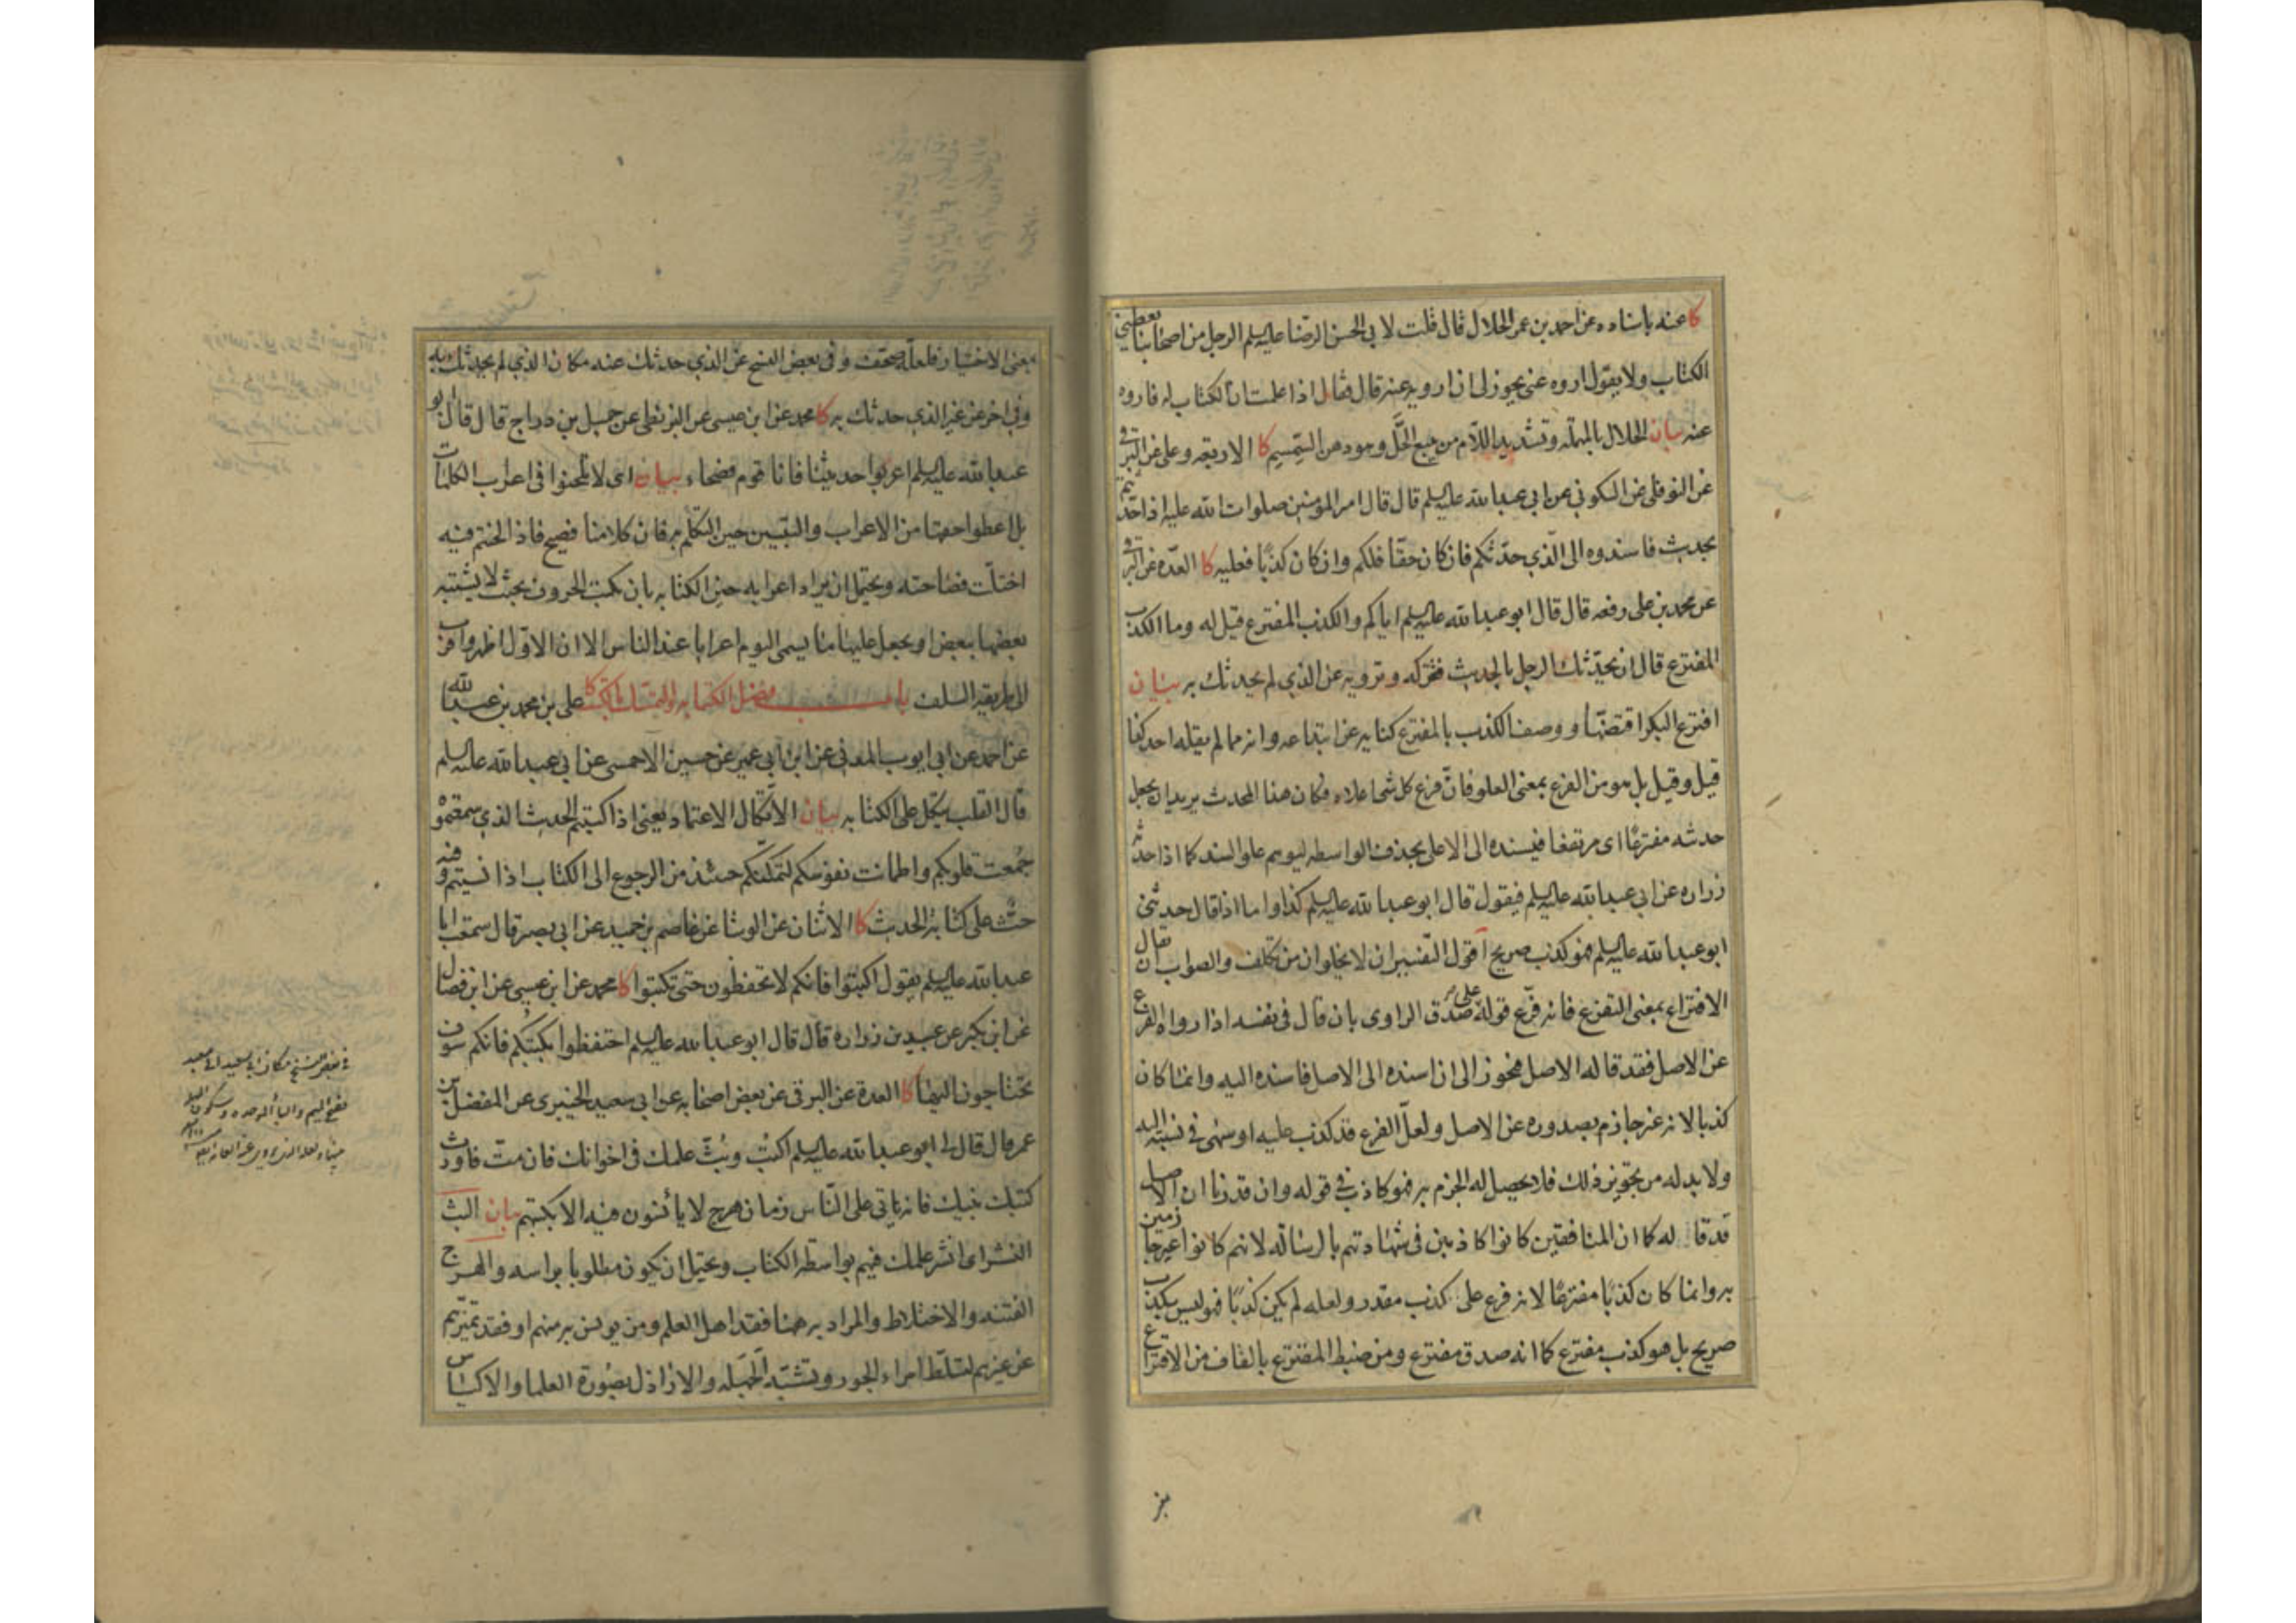 كا عنه باسناده عن احمد بن عمر الحلال قال قلت لابي الحسن الرضا عليه السلم الرجل من اصحابنا يعطيني
الكتاب ولا يقول اروه عنى يجوز لى ان ارويه عنه قال فقال اذا علمت ان الكتاب له فاروه
عنه بيان الحلال بالمهملة وتشديد اللام من يبيع الحَلّ وهو دهن السمسم كا الاربعة وعلى عن البرقي
عن النوفلى عن السكونى عن ابى عبد الله عليه السلم قال قال امير المؤمنين صلوات الله عليه اذا حدثتم
بحديث فاسندوه الى الّذي حدّثكم فان كان حقّا فلكم وان كان كذبًا فعليه كا العدّة عن البرقي
عن محمد بن على رفعه قال قال ابو عبد الله عليه السلم اياكم والكذب المفترع قيل له وما الكذب
المفترع قال ان يحدّثك الرجل بالحديث فتتركه وترويه عن الذي لم يحدثك به بيان
افترع البكر اقتضّها ووصف الكذب بالمفترع كناية عن ابتداعه وانه مما لم يقله احد كذا
قيل وقيل بل هو من الفرع بمعنى العلو فانّ فرع كل شئ اعلاه فكان هذا المحدث يريد ان يجعل
حديثه مفترعًا اى مرتفعا فيسنده الى الاعلى بحذف الواسطه ليوهم علو السند كما اذا حدث
زراره عن ابى عبد الله عليه السلم فيقول قال ابو عبد الله عليه السلم كذا واما اذا قال حدثني
ابو عبد الله عليه السلم فهو كذب صريح اقول التفسيران لا يخلوان من تكلف والصواب ان يقال
الافتراع بمعنى التفرع فانه فرّع قوله على صدق الراوى بان قال فى نفسه اذا رواه الفرع
عن الاصل فقد قاله الاصل فيجوز لى ان اسنده الى الاصل فاسنده اليه وانما كان
كذبا لانه غير جازم بصدوره عن الاصل ولعلّ الفرع قد كذب عليه او سهى فى نسبته اليه
ولا بد له من تجويز ذلك فلا يحصل له الجزم به فهو كاذب فى قوله وان قدرنا ان الاصل
قد قا له كما ان المنافقين كانوا كاذبين فى شهادتهم بالرسالة لانهم كانوا غير جازمين
به وانما كان كذبًا مفترعًا لانه فرع على كذب مقدر ولعله لم يكن كذبًا فهو ليس بكذب
صريح بل هو كذب مفترع كما انه صدق مفترع ومن ضبط المفترع بالقاف من الاقتراع
بمعنى الاختيار فلعله صحفت وفى بعض النسخ عن الذي حدثك عنه مكان الذي لم يحدثك به
وفى اخر عن غير الذي حدثك به كا محمد عن ابن عيسى عن البزنطى عن جميل بن دراج قال قال ابو
عبد الله عليه السلم اعربوا حديثنا فانا قوم فصحاء بيان اى لا تلحنوا فى اعراب الكلمات
بل اعطوا حقها من الاعراب والتبيين حين التكلم به فان كلامنا فصيح فاذا لحنتم فيه
اختلّت فصاحته ويحتمل ان يراد اعرابه حين الكتابة بان يكتب الحروف بحيث لا يشتبه
بعضها ببعض او يجعل عليها ما يسمى اليوم اعرابا عند الناس الا ان الاوّل اظهر واقرب
الى طريقة السلف باب فضل الكتابة والتمسك بالكتب كا على بن محمد بن عبد الله
عن احمد عن ابى ايوب المدنى عن ابن ابى عمير عن حسين الاحمسى عن ابى عبد الله عليه السلم
قال القلب يتكل على الكتابة بيان الاتّكال الاعتماد يعنى اذا كتبتم الحديث الذي سمعتموه
جُمعت قلوبكم واطمانت نفوسكم لتمكنّكم حينئذ من الرجوع الى الكتاب اذا نسيتم وفيه
حثّ على كتابة الحديث كا الاثنان عن الوشا عن عاصم بن حميد عن ابى بصير قال سمعت ابا
عبد الله عليه السلم يقول اكتبوا فانكم لا تحفظون حتى تكتبوا كا محمد عن ابن عيسى عن ابن فضال
عن ابن بكير عن عبيد بن زراره قال قال ابو عبد الله عليه السلم احتفظوا بكتبكم فانكم سوف
تحتاجون اليها كا العدة عن البرقى عن بعض اصحابه عن ابى سعيد الخيبرى عن المفضل بن
عمر قال قال لى ابو عبد الله عليه السلم اكتب وبُثّ علمك فى اخوانك فان متّ فاورث
كتبك بنيك فانه ياتى على النّاس زمان هرج لا يأنسون فيه الا بكتبهم بيان البث
النشر اى انشر علمك فيهم بواسطه الكتاب ويحتمل ان يكون مطلوبا براسه والهرج
الفتنه والاختلاط والمراد به هنا فقد اهل العلم ومن يونس به منهم او فقد تميّزهم
عن غيرهم لتسلّط امراء الجور وتشبّه الجهلة والاراذل بصورة العلما والاكياس